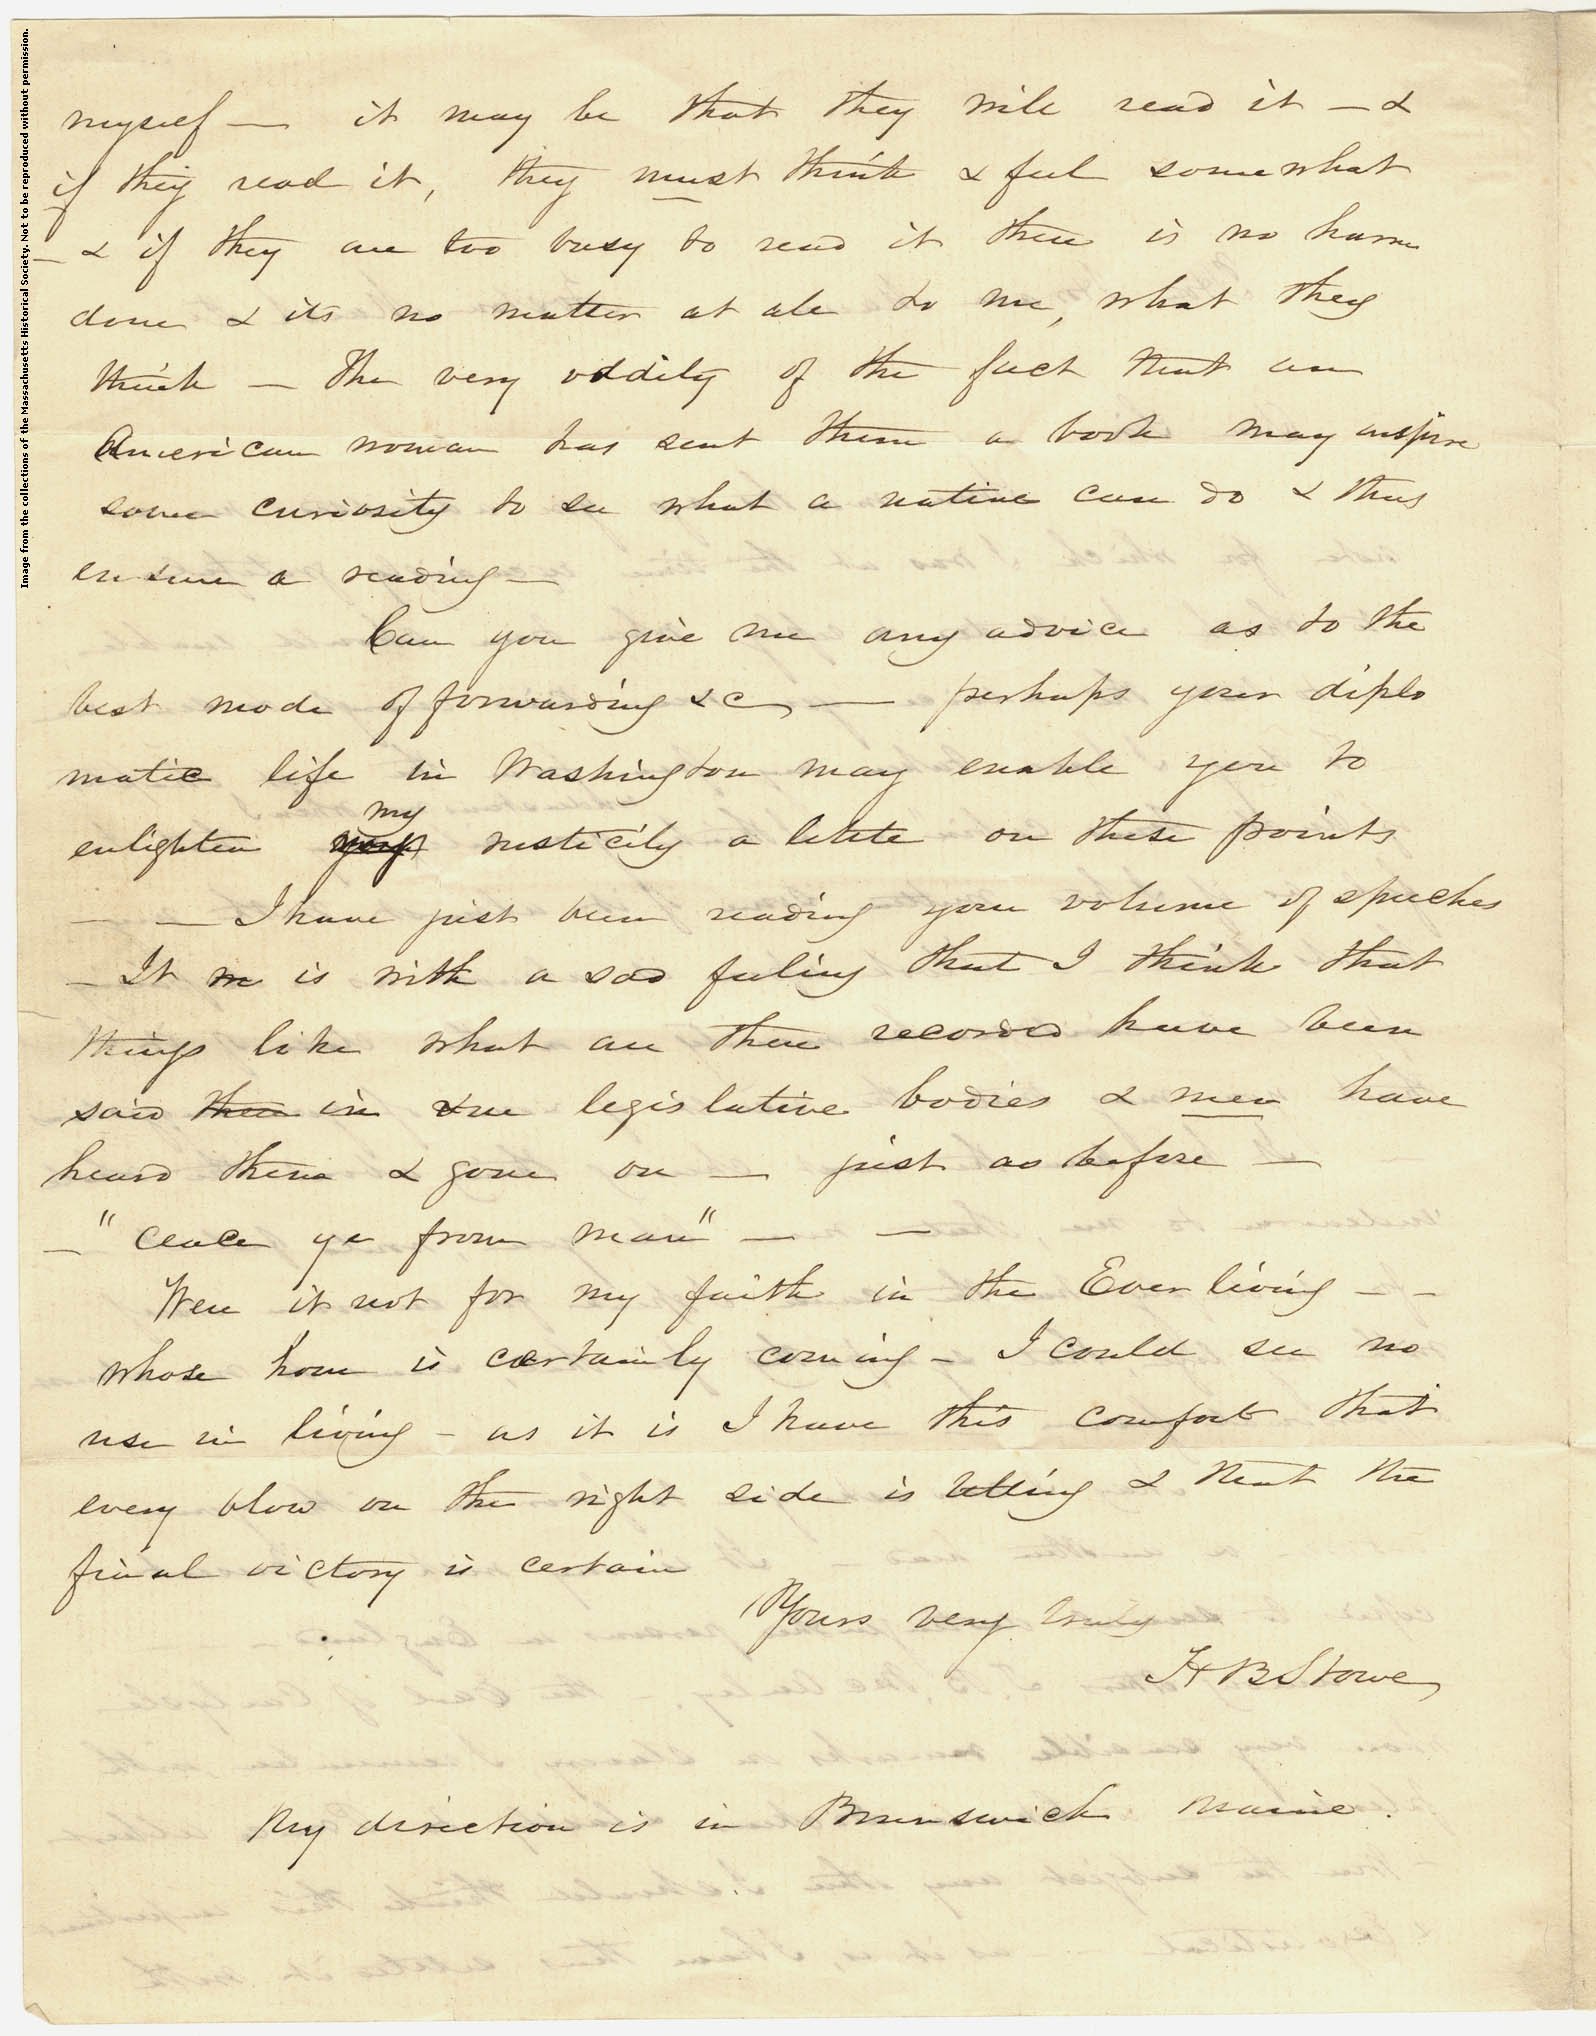 Image from the collections of the Massachusetts Historical Society. Not to be reproduced without permission.
myself — it may be that they will read it — &
if they read it, they must think & feel somewhat
— & if they are too busy to read it there is no harm
done & its no matter at all to me, what they
think — The very oddity of the fact that an
American woman has sent them a book may inspire
some curiosity to see what a native can do & thus
ensure a reading —
Can you give me any advice as to the
best mode of forwarding &c, — perhaps your diplo
matic life in Washington may enable you to
my
enlighten rusticity a little on these points
— — I have just been reading your volume of speeches
— It is with a sad feeling that I think that
things like what are there recorded have been
said them in our legislative bodies & men have
heard them & gone on — just as before —
— "cease ye from man" — —
Were it not for my faith in the Ever living — —
whose hour is certainly coming — I could see no
use in living — as it is I have this comfort that
every blow on the right side is telling & that the
final victory is certain
Yours very truly
H B Stowe
My direction is in Brunswick Maine.